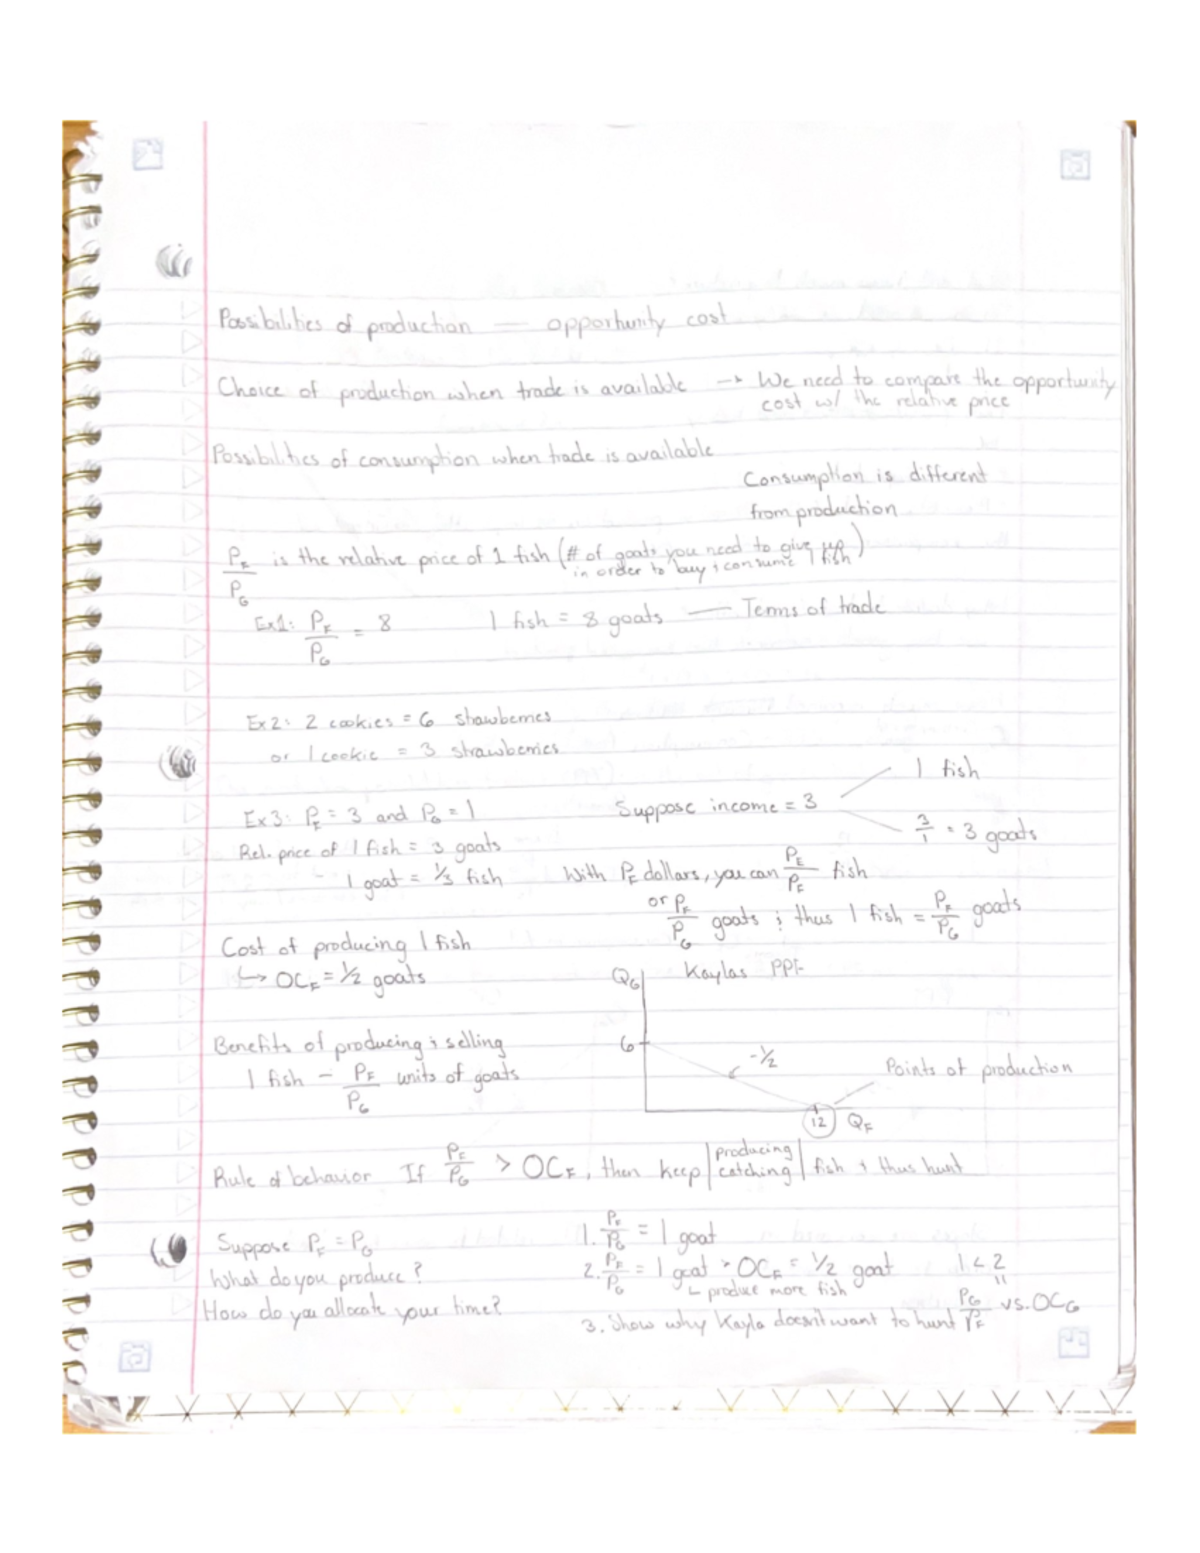 Possibilities of production — opportunity cost
Choice of production when trade is available → We need to compare the opportunity
cost w/ the relative price
Possibilities of consumption when trade is available
Consumption is different
from production
P_F/P_G is the relative price of 1 fish (# of goats you need to give up
in order to buy & consume 1 fish)
Ex1: P_F/P_G = 8 1 fish = 8 goats — Terms of trade
Ex2: 2 cookies = 6 strawberries
or 1 cookie = 3 strawberries
Ex3: P_F = 3 and P_G = 1
Rel. price of 1 fish = 3 goats
1 goat = 1/3 fish
Suppose income = 3
1 fish
3/1 = 3 goats
With P_F dollars, you can P_F/P_F fish
or P_F/P_G goats & thus 1 fish = P_F/P_G goats
Cost of producing 1 fish
↳ OC_F = 1/2 goats
Benefits of producing & selling
1 fish – P_F/P_G units of goats
Kaylas PPF
Q_G
6
-1/2
12
Q_F
Points of production
Rule of behavior If P_F/P_G > OC_F, then keep |producing catching| fish & thus hunt
Suppose P_F = P_G
What do you produce?
How do you allocate your time?
1. P_F/P_G = 1 goat
2. P_F/P_G = 1 goat > OC_F = 1/2 goat
↳ produce more fish
3. Show why Kayla doesn't want to hunt P_G/P_F vs. OC_G
1 < 2